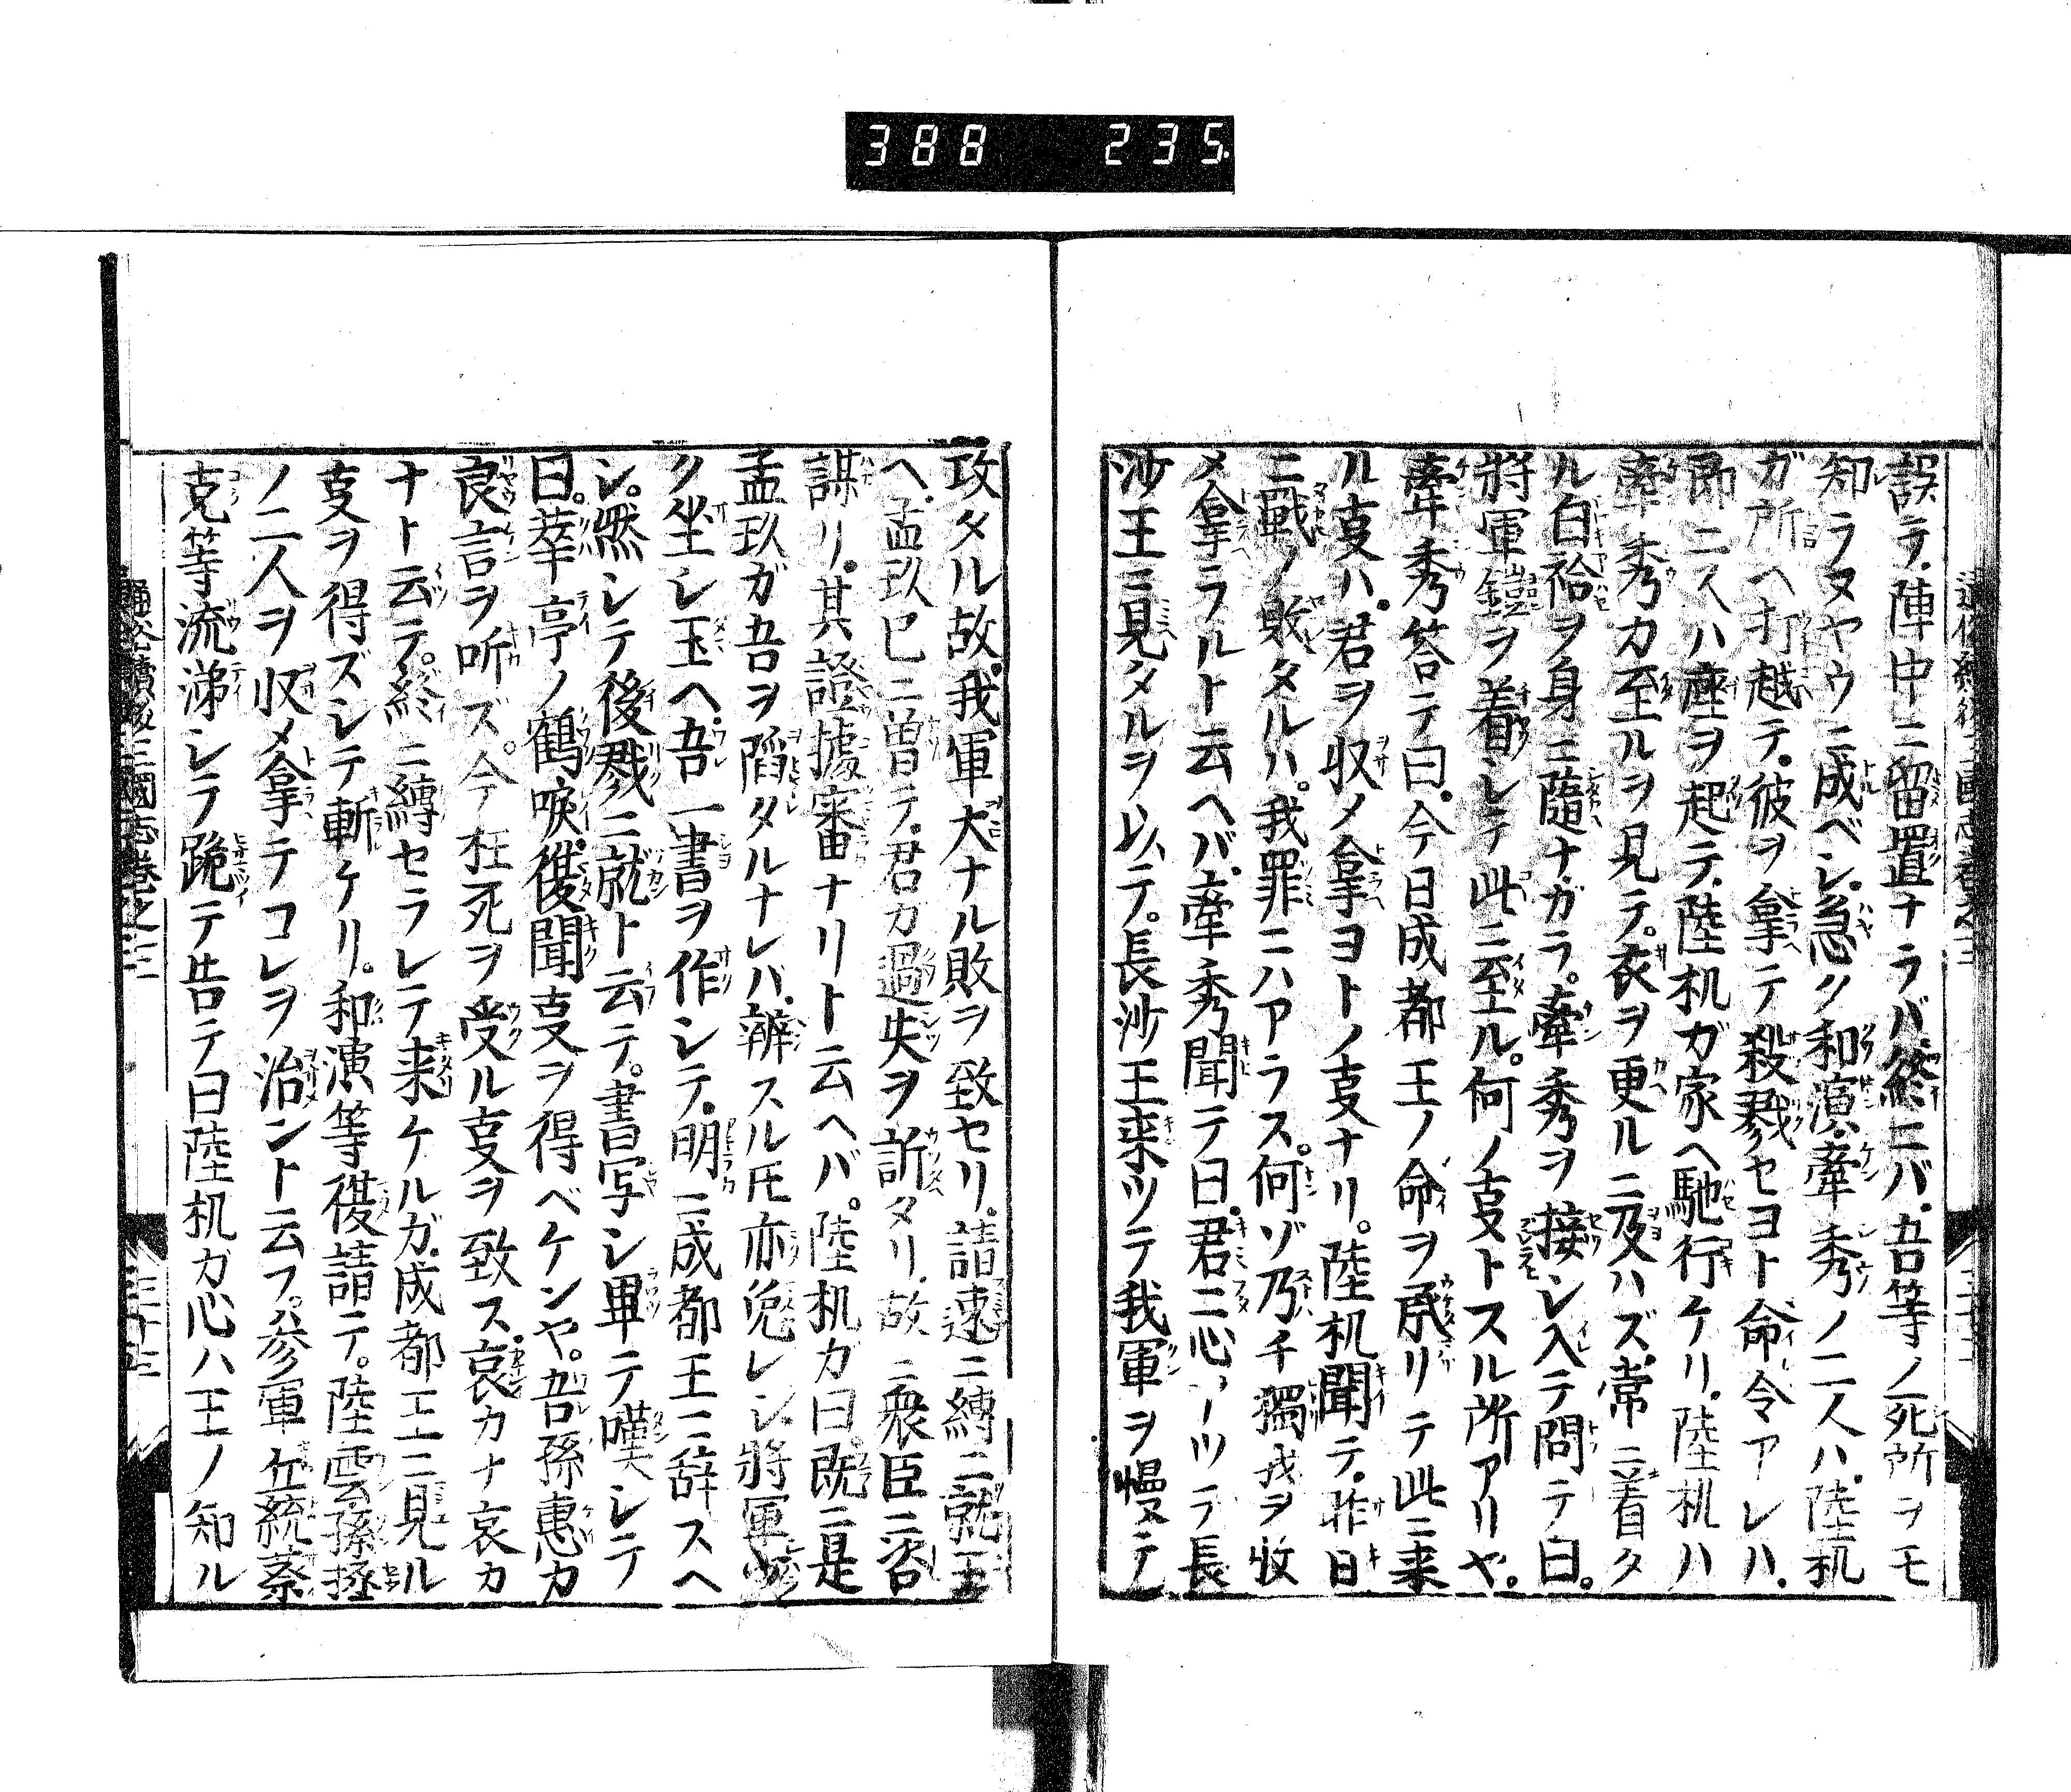 388 235
誤テ陣中ニ留置ナラバ終ニバ吾等ノ死所ヲモ
知ラヌヤウニ成ベシ急ク和演牽秀ノ二人ハ陸机
ガ所ヘ打越テ彼ヲ拿テ殺戮セヨト命令アレハ
即二人ハ座ヲ起テ陸机ガ家ヘ馳行ケリ陸机ハ
牽秀カ至ルヲ見テ衣ヲ更ルニ及ハズ常ニ着タ
ル白袷ヲ身ニ隨ナガラ牽秀ヲ接シ入テ問テ曰
將軍鎧ヲ着シテ此ニ至ル何ノ支トスル所アリヤ
牽秀答テ曰今日成都王ノ命ヲ承リテ此ニ来
ル支ハ君ヲ収メ拿ヨトノ支ナリ陸机聞テ昨日
ニ戰ノ敗タルハ我罪ニハアラス何ゾ乃チ獨我ヲ收
メ拿ラルト云ヘバ牽秀聞テ曰君二心アツテ長
沙王ニ見タルヲ以テ長沙王来ツテ我軍ヲ慢テ
攻タル故我軍大ナル敗ヲ致セリ請速ニ縛ニ就玉
ヘ孟玖已ニ曽テ君カ過失ヲ訴タリ故ニ衆臣ニ咨
謀リ其證據審ナリト云ヘバ陸机カ曰既ニ是
孟玖ガ吾ヲ䧟タルナレバ辨スル𪜈亦免レシ將軍少
ク坐シ玉ヘ吾一書ヲ作シテ明ニ成都王ニ辞スヘ
シ然シテ後戮ニ就ト云テ書写シ畢テ嘆シテ
曰華亭ノ鶴唳復聞支ヲ得ベケンヤ吾孫惠カ
良言ヲ听ズ今枉死ヲ受ル支ヲ致ス哀カナ哀カ
ナト云テ終ニ縛セラレテ来ケルガ成都王ニ見ル
支ヲ得ズシテ斬ケリ和演等復請テ陸雲孫拯
ノ二人ヲ収メ拿テコレヲ治ントス云フ参軍丘統蔡
克等流涕シラ跪テ告テ曰陸机カ心ハ王ノ知ル
三國志卷之三
三十三